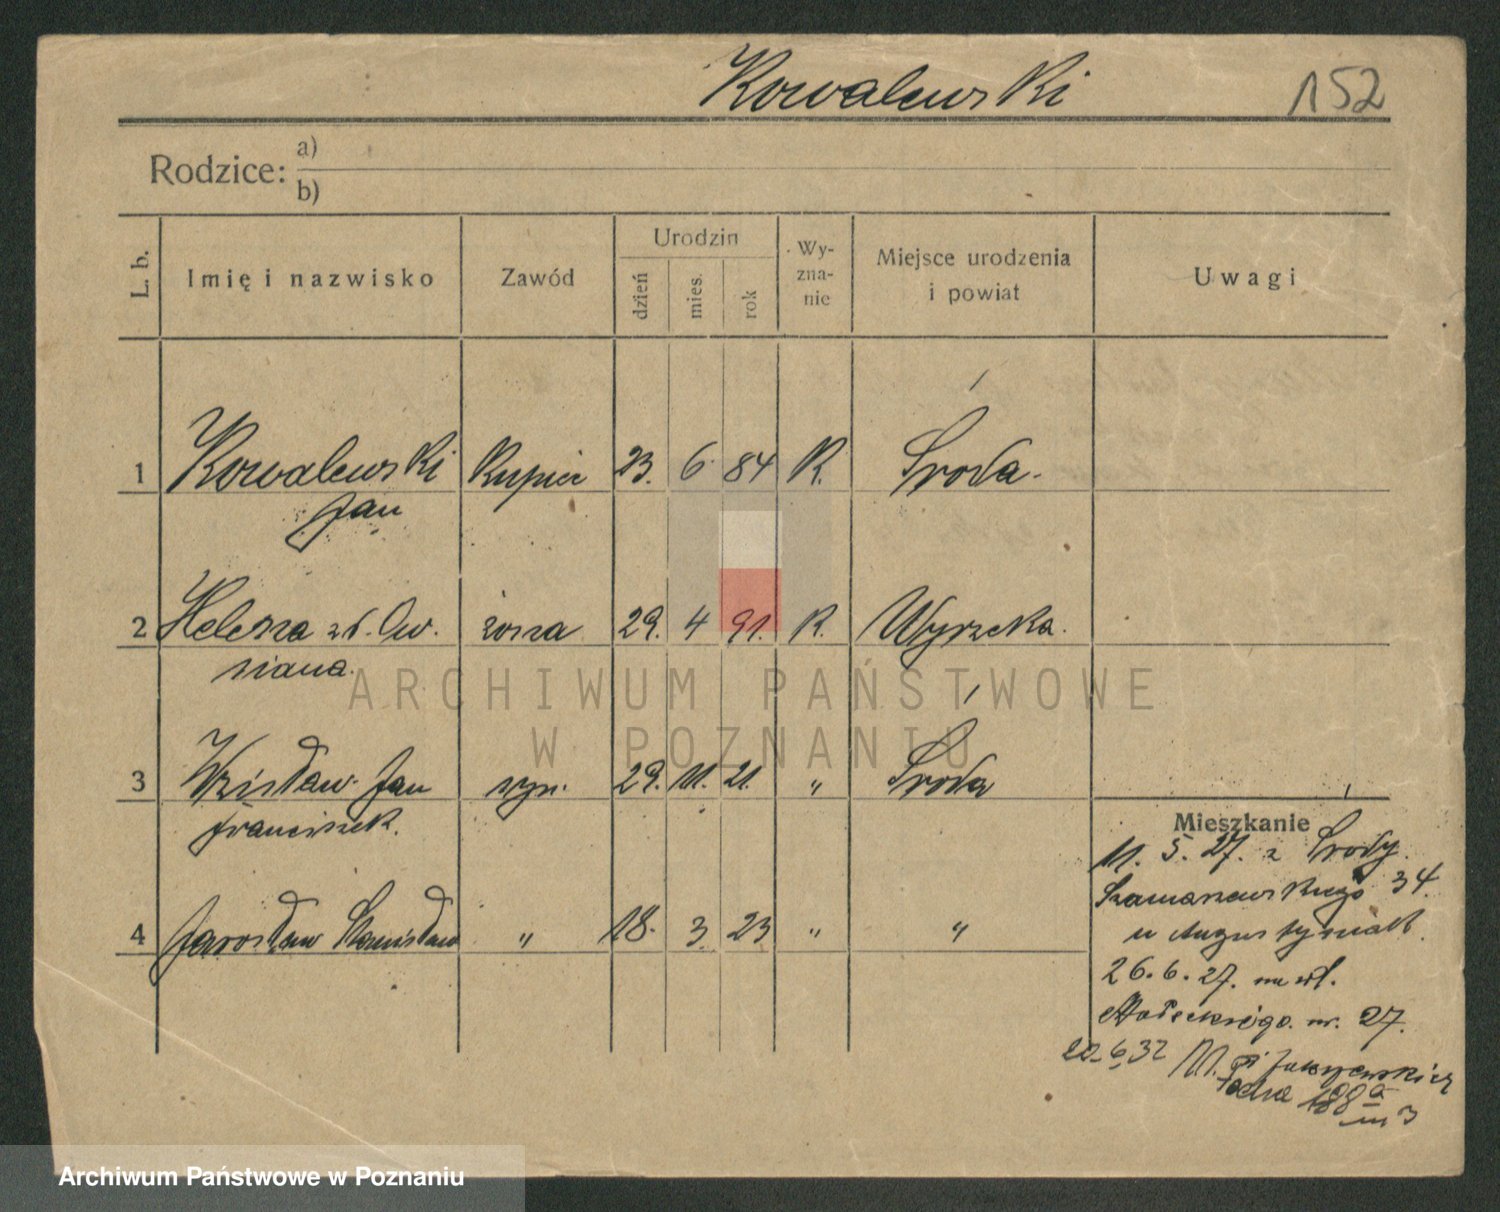 Kowalewski 152
Rodzice: a)
b)
L. b. Imię i nazwisko Zawód Urodzin dzień mies. rok Wy-zna-nie Miejsce urodzenia i powiat Uwagi
1 Kowalewski Kupiec 23. 6. 84 R. Środa.
Jan
2 Helena zd. Ow. żona 29. 4 91. R. Wyrzeka.
siana.
3 Wzisław. Jan syn. 29. 11. 21. " Środa
Franciszek.
4 Jarosław Stanisław " 18. 3 23 " "
Mieszkanie
11. 5. 27. z Środy.
Szamarzewskiego 34.
u Augustyniak.
26. 6. 27. na wł.
Małeckiego. nr. 27.
22-6 32 M.
188a
m 3
ARCHIWUM PAŃSTWOWE
W POZNANIU
Archiwum Państwowe w Poznaniu